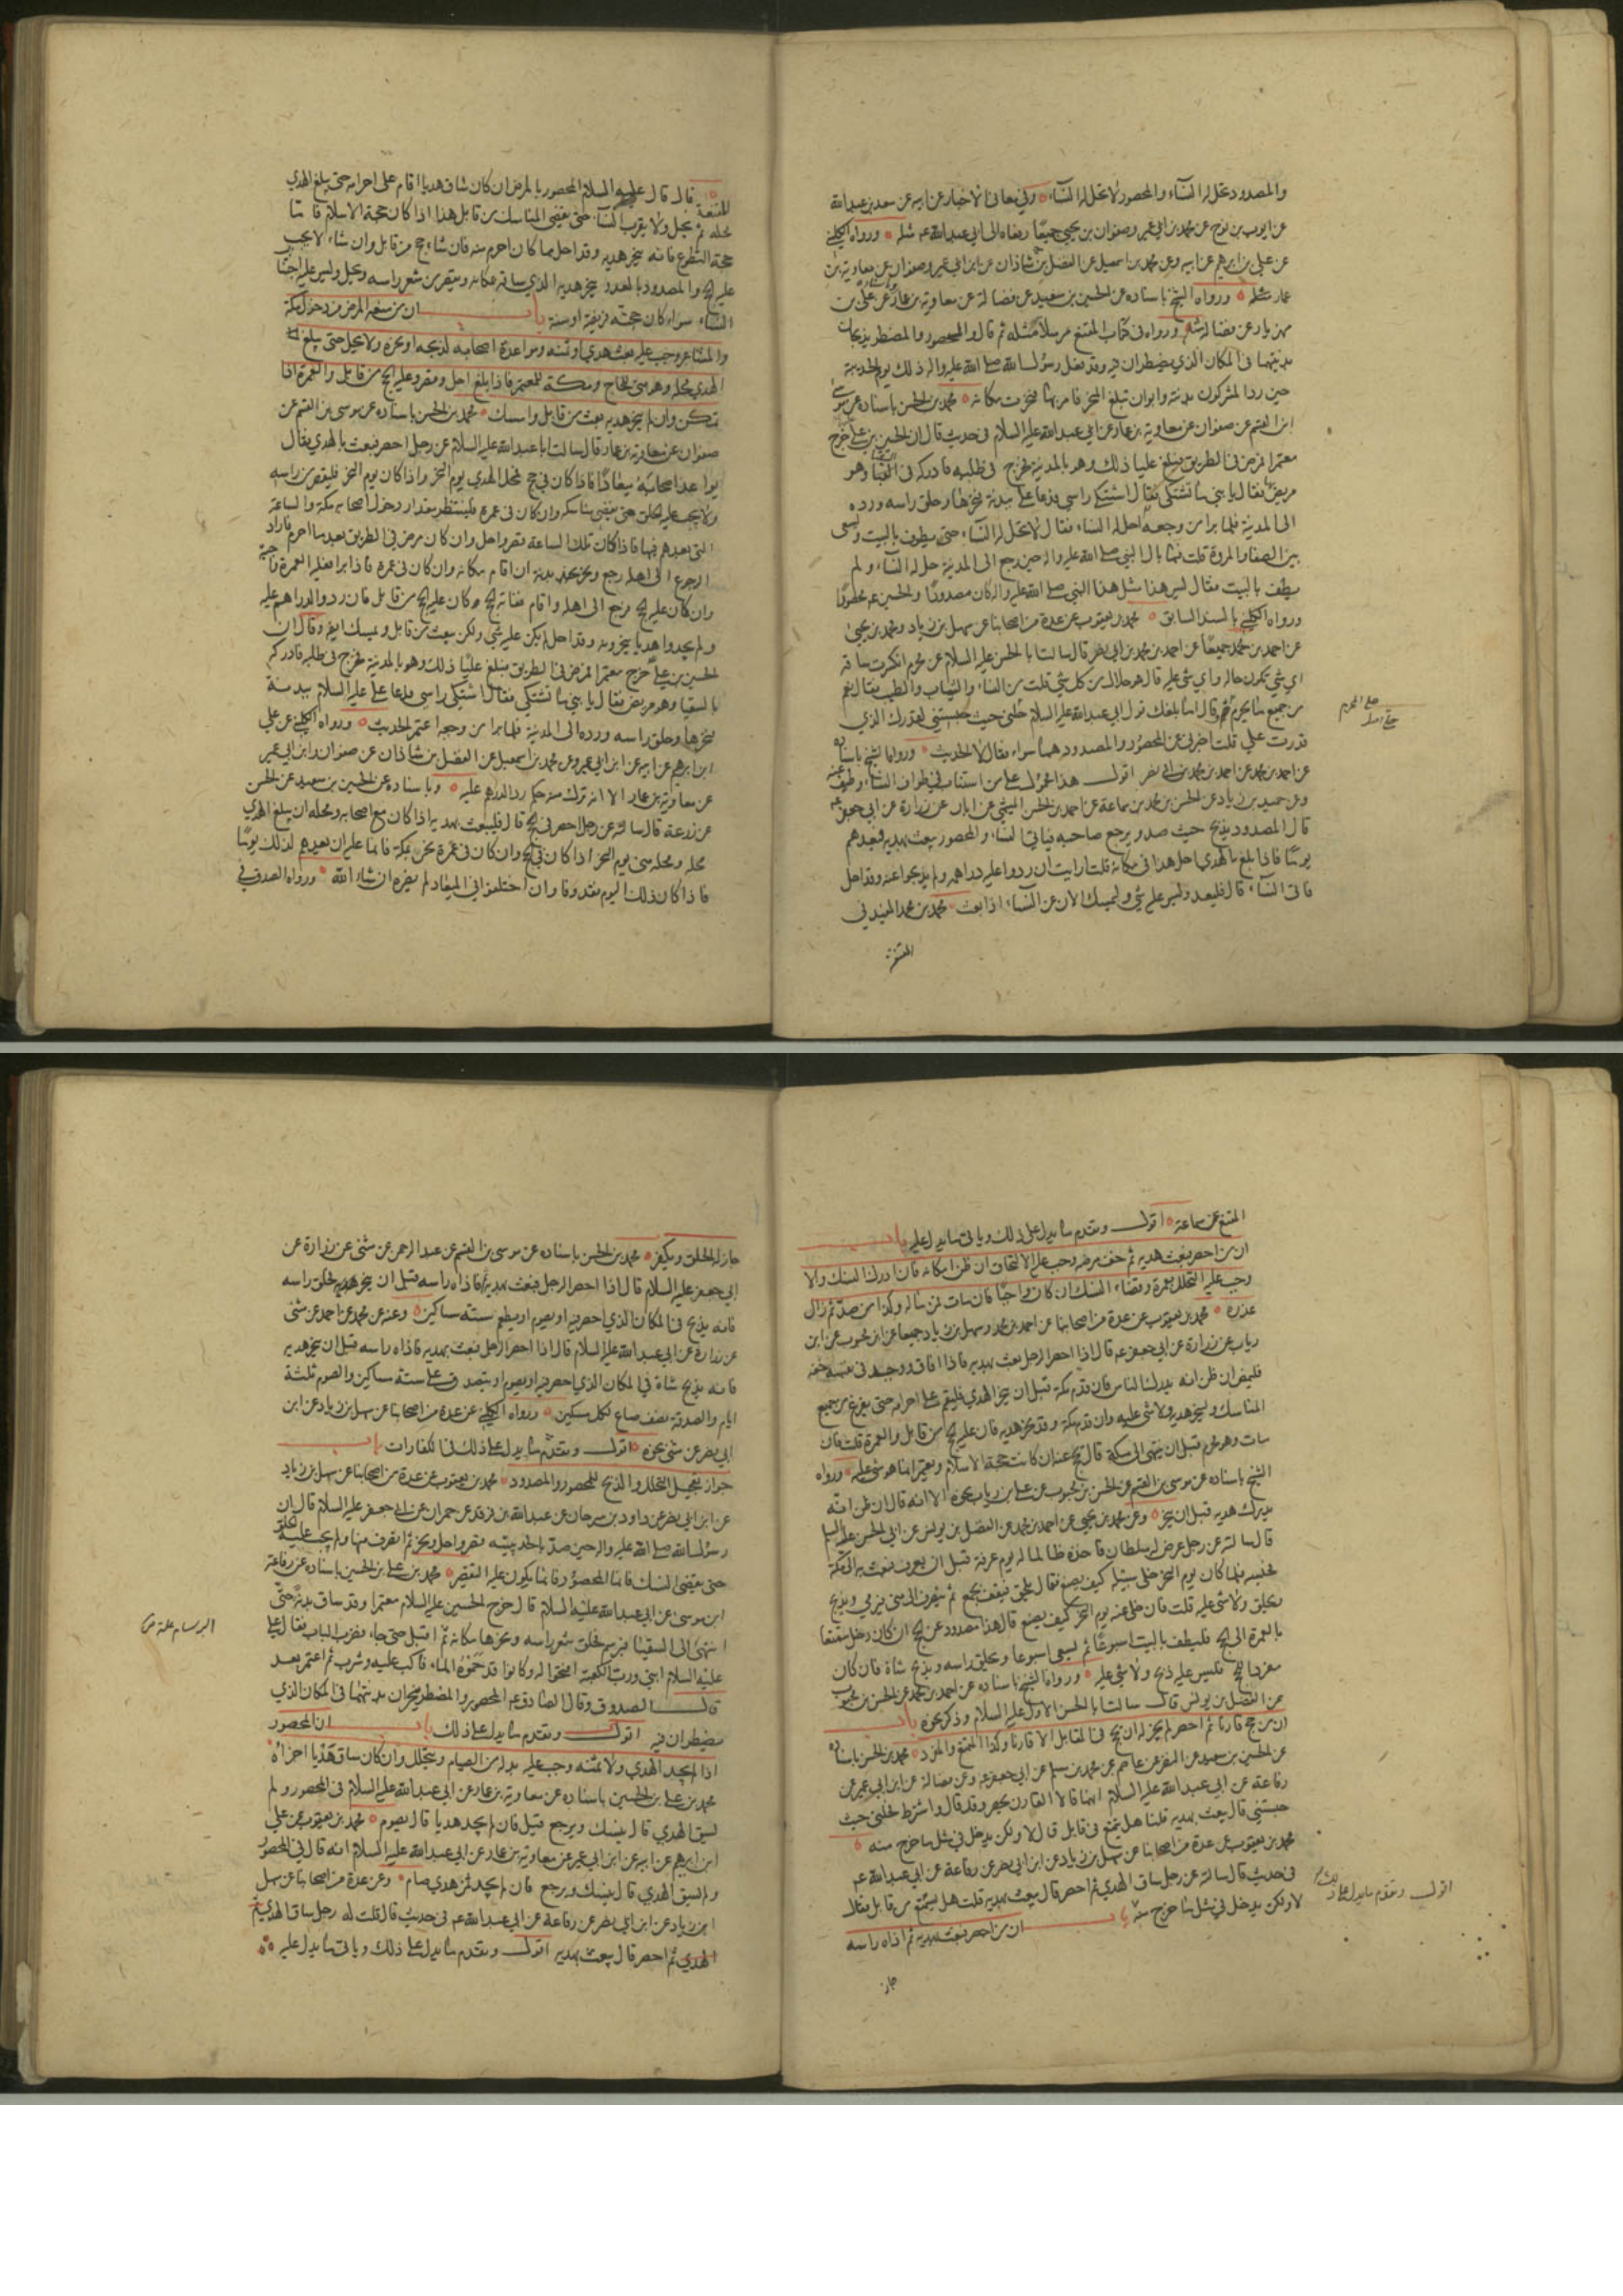 والمصدود تحل له النساء والمحصور لا تحل له النساء وفي معاني الاخبار عن ابيه عن سعد بن عبدالله
عن ايوب بن نوح عن محمد بن ابي عمير وصفوان بن يحيى جميعا رفعاه الى ابي عبدالله عم مثله ورواه الكليني
عن علي بن ابرهيم عن ابيه وعن محمد بن اسمعيل عن الفضل بن شاذان عن ابن ابي عمير وصفوان عن معاوية بن
عمار مثله ورواه الشيخ باسناده عن الحسين بن سعيد عن فضالة عن معاوية بن عمار عن علي بن
مهزيار عن فضالة مثله ورواه في كتاب المقنع مرسلا مثله ثم قال والمحصور والمضطر يذبحان
بدنتهما في المكان الذي يضطران فيه وقد فعل رسول الله صلى الله عليه واله ذلك يوم الحديبية
حين رد المشركون بدنته وابوان تبلغ المنحر فامر بها فنحرت مكانه محمد بن الحسن باسناده عن موسى
ابن القسم عن صفوان عن معاوية بن عمار عن ابي عبدالله عليه السلام في حديث قال ان الحسين بن علي خرج
معتمرا فمرض في الطريق فبلغ عليا ذلك وهو بالمدينة فخرج في طلبه فادركه في السقيا وهو
مريض فقال يا بني ما تشتكي فقال اشتكي راسي فدعا علي ببدنة فنحرها وحلق راسه ورده
الى المدينة فلما برا من وجعه احل له النساء فقال لا تحل له النساء حتى يطوف بالبيت ويسعى
بين الصفا والمروة قلت فما بال النبي صلى الله عليه واله حين رجع الى المدينة حل له النساء ولم
يطف بالبيت فقال ليس هذا مثل هذا النبي صلى الله عليه واله كان مصدودا والحسين عم محصورا
ورواه الكليني بالسند السابق محمد بن يعقوب عن عدة من اصحابنا عن سهل بن زياد ومحمد بن يحيى
عن احمد بن محمد جميعا عن احمد بن محمد بن ابي نصر قال سالت ابا الحسن عليه السلام عن محرم انكسرت ساقه
اي شي تكون حاله واي شي عليه قال هو حلال من كل شي قلت من النساء والثياب والطيب فقال نعم
من جميع ما يحرم على المحرم قال اما بلغك قول ابي عبدالله عليه السلام حلني حيث حبستني لقدرك الذي
قدرت علي قلت اخبرني عن المحصور والمصدود هما سواء فقال لا الحديث ورواه الشيخ باسناده
عن احمد بن محمد عن احمد بن محمد بن ابي نصر اقول هذا محمول على من استناب في طواف النساء وطيف عنه
وعن حميد بن زياد عن الحسن بن محمد بن سماعة عن احمد بن الحسن الميثمي عن ابان عن زرارة عن ابي جعفر عم
قال المصدود يذبح حيث صد ويرجع صاحبه فياتي النساء والمحصور يبعث بهديه فيعدهم
يوما فاذا بلغ الهدي احل هذا في مكانه قلت ارايت ان ردوا عليه دراهمه ولم يذبحوا عنه وقد احل
فاتى النساء قال فليعد وليس عليه شي وليمسك الان عن النساء اذا بعث محمد بن محمد المفيد في
المقنعة
قال قال عليه السلام المحصور بالمرض ان كان ساق هديا اقام على احرامه حتى يبلغ الهدي
محله ثم يحل ولا يقرب النساء حتى يقضي المناسك من قابل هذا اذا كان حجة الاسلام فاما
حجة التطوع فانه ينحر هديه وقد احل مما كان احرم منه فان شاء حج من قابل وان شاء لا يجب
عليه الحج والمصدود بالعدو ينحر هديه الذي ساقه بمكانه ويقصر من شعر راسه ويحل وليس عليه اجتناب
النساء سواء كان حجته فريضة او سنة باب ان من منعه المرض من دخول مكة
والمشاعر وجب عليه بعث هدي او ثمنه ومواعدة اصحابه لذبحه او نحره ولا يحل حتى يبلغ
الهدي محله وهو منى للحاج ومكة للمعتمر فاذا بلغ احل وقصر وعليه الحج من قابل والعمرة اذا
تمكن وان لم ينحر هديه بعث من قابل وامسك محمد بن الحسن باسناده عن موسى بن القسم عن
صفوان عن معاوية بن عمار قال سالت ابا عبدالله عليه السلام عن رجل احصر فبعث بالهدي فقال
يواعد اصحابه ميعادا فاذا كان في حج فمحل الهدي يوم النحر واذا كان يوم النحر فليقصر من راسه
ولا يجب عليه الحلق حتى يقضي مناسكه وان كان في عمرة فلينتظر مقدار دخول اصحابه مكة والساعة
التي يعدهم فيها فاذا كان تلك الساعة قصر واحل وان كان مرض في الطريق بعد ما احرم فاراد
الرجوع الى اهله رجع ونحر بدنة ان اقام مكانه وان كان في عمرة فاذا برا فعليه العمرة واجبة
وان كان عليه الحج فرجع الى اهله واقام ففاته الحج وكان عليه الحج من قابل فان ردوا الدراهم عليه
ولم يجدوا هديا ينحرونه وقد احل لم يكن عليه شي ولكن يبعث من قابل ويمسك ايضا وقال ان
الحسين بن علي خرج معتمرا فمرض في الطريق فبلغ عليا ذلك وهو بالمدينة فخرج في طلبه فادركه
بالسقيا وهو مريض فقال يا بني ما تشتكي فقال اشتكي راسي فدعا علي عليه السلام ببدنة
فنحرها وحلق راسه ورده الى المدينة فلما برا من وجعه اعتمر الحديث ورواه الكليني عن علي
ابن ابرهيم عن ابيه عن ابن ابي عمير وعن محمد بن اسمعيل عن الفضل بن شاذان عن صفوان وابن ابي عمير
عن معاوية بن عمار الا انه ترك منه حكم رد الدراهم عليه وباسناده عن الحسين بن سعيد عن الحسن
عن زرعة قال سالته عن رجل احصر في الحج قال فليبعث بهديه اذا كان مع اصحابه ومحله ان يبلغ الهدي
محله ومحله منى يوم النحر اذا كان في الحج وان كان في عمرة نحر بمكة فانما عليه ان يعدهم لذلك يوما
فاذا كان ذلك اليوم فقد وفا وان اختلفوا في الميعاد لم يضره ان شاء الله ورواه الصدوق في
المقنع عن سماعة اقول وتقدم ما يدل على ذلك وياتي ما يدل عليه باب
ان من احصر فبعث هديه ثم خف مرضه وجب عليه الالتحاق ان ظن امكانه فان ادرك النسك والا
وجب عليه التحلل بعمرة وقضاء النسك ان كان واجبا فان مات فمن ماله وكذا من صد ثم زال
عذره محمد بن يعقوب عن عدة من اصحابنا عن احمد بن محمد وسهل بن زياد جميعا عن ابن محبوب عن ابن
رياب عن زرارة عن ابي جعفر عم قال اذا احصر الرجل بعث بهديه فاذا افاق ووجد في نفسه خفة
فليمض ان ظن انه يدرك الناس فان قدم مكة قبل ان ينحر الهدي فليقم على احرامه حتى يفرغ من جميع
المناسك ولينحر هديه ولا شي عليه وان قدم مكة وقد نحر هديه فان عليه الحج من قابل والعمرة قلت فان
مات وهو محرم قبل ان ينتهي الى مكة قال يحج عنه ان كانت حجة الاسلام ويعتمر انما هو شي عليه ورواه
الشيخ باسناده عن موسى بن القسم عن الحسن بن محبوب عن علي بن رياب نحوه الا انه قال ان ظن انه
يدرك هديه قبل ان ينحر وعن محمد بن يحيى عن احمد بن محمد عن الفضل بن يونس عن ابي الحسن عليه السلام
قال سالته عن رجل عرض له سلطان فاخذه ظالما له يوم عرفة قبل ان يعرف فبعث به الى مكة
فحبسه فلما كان يوم النحر خلى سبيله كيف يصنع فقال يلحق فيقف بجمع ثم ينصرف الى منى فيرمي ويذبح
ويحلق ولا شي عليه قلت فان خلى عنه يوم النحر كيف يصنع قال هذا مصدود عن الحج ان كان دخل متمتعا
بالعمرة الى الحج فليطف بالبيت اسبوعا ثم يسعى اسبوعا ويحلق راسه ويذبح شاة فان كان
مفردا للحج فليس عليه ذبح ولا شي عليه ورواه الشيخ باسناده عن احمد بن محمد عن الحسن بن محبوب
عن الفضل بن يونس قال سالت ابا الحسن الاول عليه السلام وذكر نحوه باب
ان من حج قارنا ثم احصر لم يجز له ان يحج في القابل الا قارنا وكذا المتمتع والمفرد محمد بن الحسن باسناده
عن الحسين بن سعيد عن النضر عن عاصم عن محمد بن مسلم عن ابي جعفر عم وعن فضالة عن ابن ابي عمير عن
رفاعة عن ابي عبدالله عليه السلام انهما قالا القارن يحصر وقد قال واشترط فحلني حيث
حبستني قال يبعث بهديه قلنا هل يتمتع في قابل قال لا ولكن يدخل في مثل ما خرج منه
محمد بن يعقوب عن عدة من اصحابنا عن سهل بن زياد عن ابن ابي نصر عن رفاعة عن ابي عبدالله عم
في حديث قال سالته عن رجل ساق الهدي ثم احصر قال يبعث بهديه قلت هل يتمتع من قابل فقال
لا ولكن يدخل في مثل ما خرج منه باب ان من احصر فبعث بهديه ثم اذاه راسه
جاز
اقول وتقدم ما يدل على ذلك
جاز له الحلق ويكفر محمد بن الحسن باسناده عن موسى بن القسم عن عبد الرحمن عن مثنى عن زرارة عن
ابي جعفر عليه السلام قال اذا احصر الرجل فبعث بهديه فاذاه راسه قبل ان ينحر هديه فحلق راسه
فانه يذبح في المكان الذي احصر فيه او يصوم او يطعم ستة مساكين وعنه عن محمد عن احمد عن مثنى
عن زرارة عن ابي عبدالله عليه السلام قال اذا احصر الرجل فبعث بهديه فاذاه راسه قبل ان ينحر هديه
فانه يذبح شاة في المكان الذي احصر فيه او يصوم او يتصدق على ستة مساكين والصوم ثلثة
ايام والصدقة نصف صاع لكل مسكين ورواه الكليني عن عدة من اصحابنا عن سهل بن زياد عن ابن
ابي نصر عن مثنى نحوه اقول وتقدم ما يدل على ذلك في الكفارات باب
جواز تعجيل التحلل والذبح للمحصور والمصدود محمد بن يعقوب عن عدة من اصحابنا عن سهل بن زياد
عن ابن ابي نصر عن داود بن سرحان عن عبدالله بن فرقد عن حمران عن ابي جعفر عليه السلام قال ان
رسول الله صلى الله عليه واله حين صد بالحديبية قصر واحل ونحر ثم انصرف منها ولم يجب عليه الحلق
حتى يقضي النسك فاما المحصور فانما يكون عليه التقصير محمد بن علي بن الحسين باسناده عن رفاعة
ابن موسى عن ابي عبدالله عليه السلام قال خرج الحسين عليه السلام معتمرا وقد ساق بدنة حتى
انتهى الى السقيا فبرسم فحلق شعر راسه ونحرها مكانه ثم اقبل حتى جاء فضرب الباب فقال علي
عليه السلام ابني ورب الكعبة افتحوا له وكانوا قد حموه الماء فاكب عليه وشرب ثم اعتمر بعد
قال الصدوق وقال الصادق عم المحصور والمضطر ينحران بدنتهما في المكان الذي
يضطران فيه اقول وتقدم ما يدل على ذلك باب ان المحصور
اذا لم يجد الهدي ولا ثمنه وجب عليه بدله من الصيام ويتحلل وان كان ساق هديا اجزاه
محمد بن علي بن الحسين باسناده عن معاوية بن عمار عن ابي عبدالله عليه السلام في المحصور ولم
يسق الهدي قال ينسك ويرجع قيل فان لم يجد هديا قال يصوم محمد بن يعقوب عن علي
ابن ابرهيم عن ابيه عن ابن ابي عمير عن معاوية بن عمار عن ابي عبدالله عليه السلام انه قال في المحصور
ولم يسق الهدي قال ينسك ويرجع فان لم يجد ثمن هدي صام وعن عدة من اصحابنا عن سهل
ابن زياد عن ابن ابي نصر عن رفاعة عن ابي عبدالله عم في حديث قال قلت له رجل ساق الهدي ثم
احصر قال يبعث بهديه اقول وتقدم ما يدل على ذلك وياتي ما يدل عليه
البرسام علة